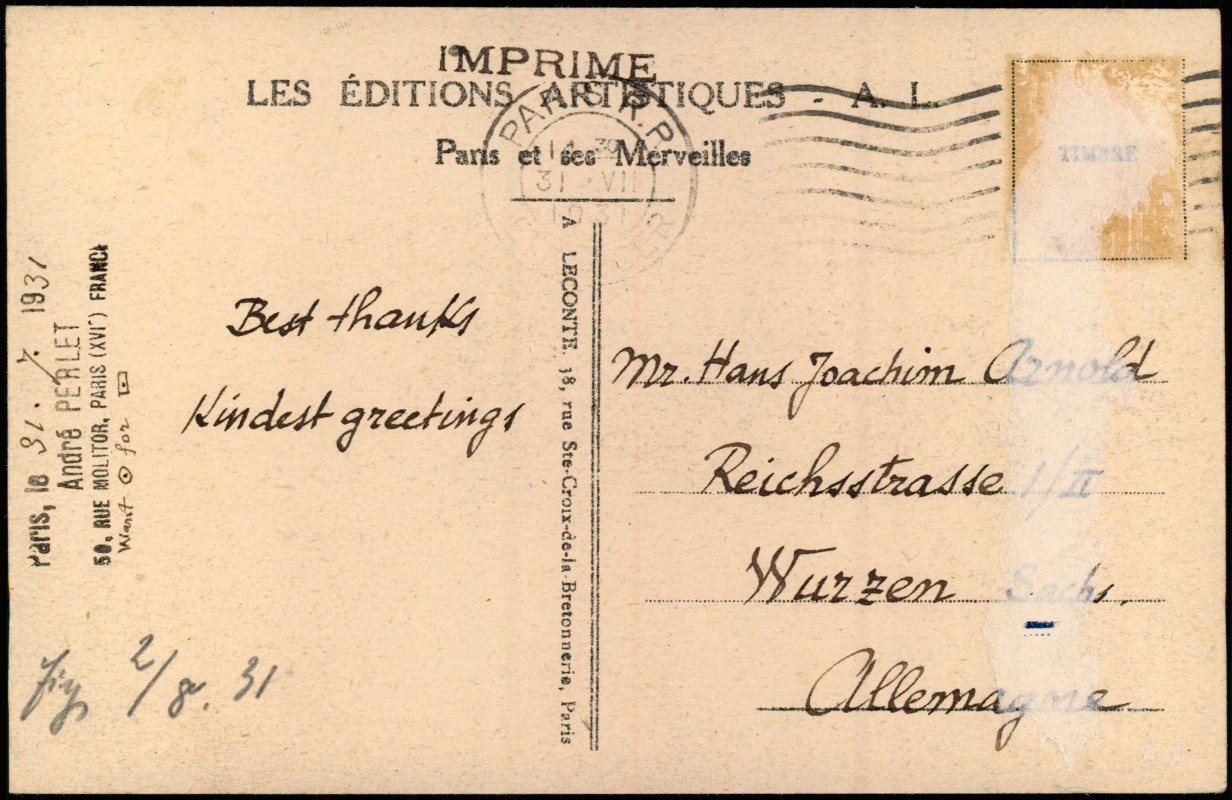 IMPRIME
LES ÉDITIONS ARTISTIQUES - A. L.
Paris et ses Merveilles
PARIS R.P.
14 30
31 VII
1931
TIMBRE
A LECONTE. 38, rue Ste-Croix-de-la-Bretonnerie, Paris
Paris, le 31. 7. 1931
André PERLET
50, RUE MOLITOR, PARIS (XVIe) FRANCE
Want for
Best thanks
Kindest greetings
Mr. Hans Joachim Arnold
Reichsstrasse 1/II
Wurzen Sachs.
Allemagne
2/8. 31